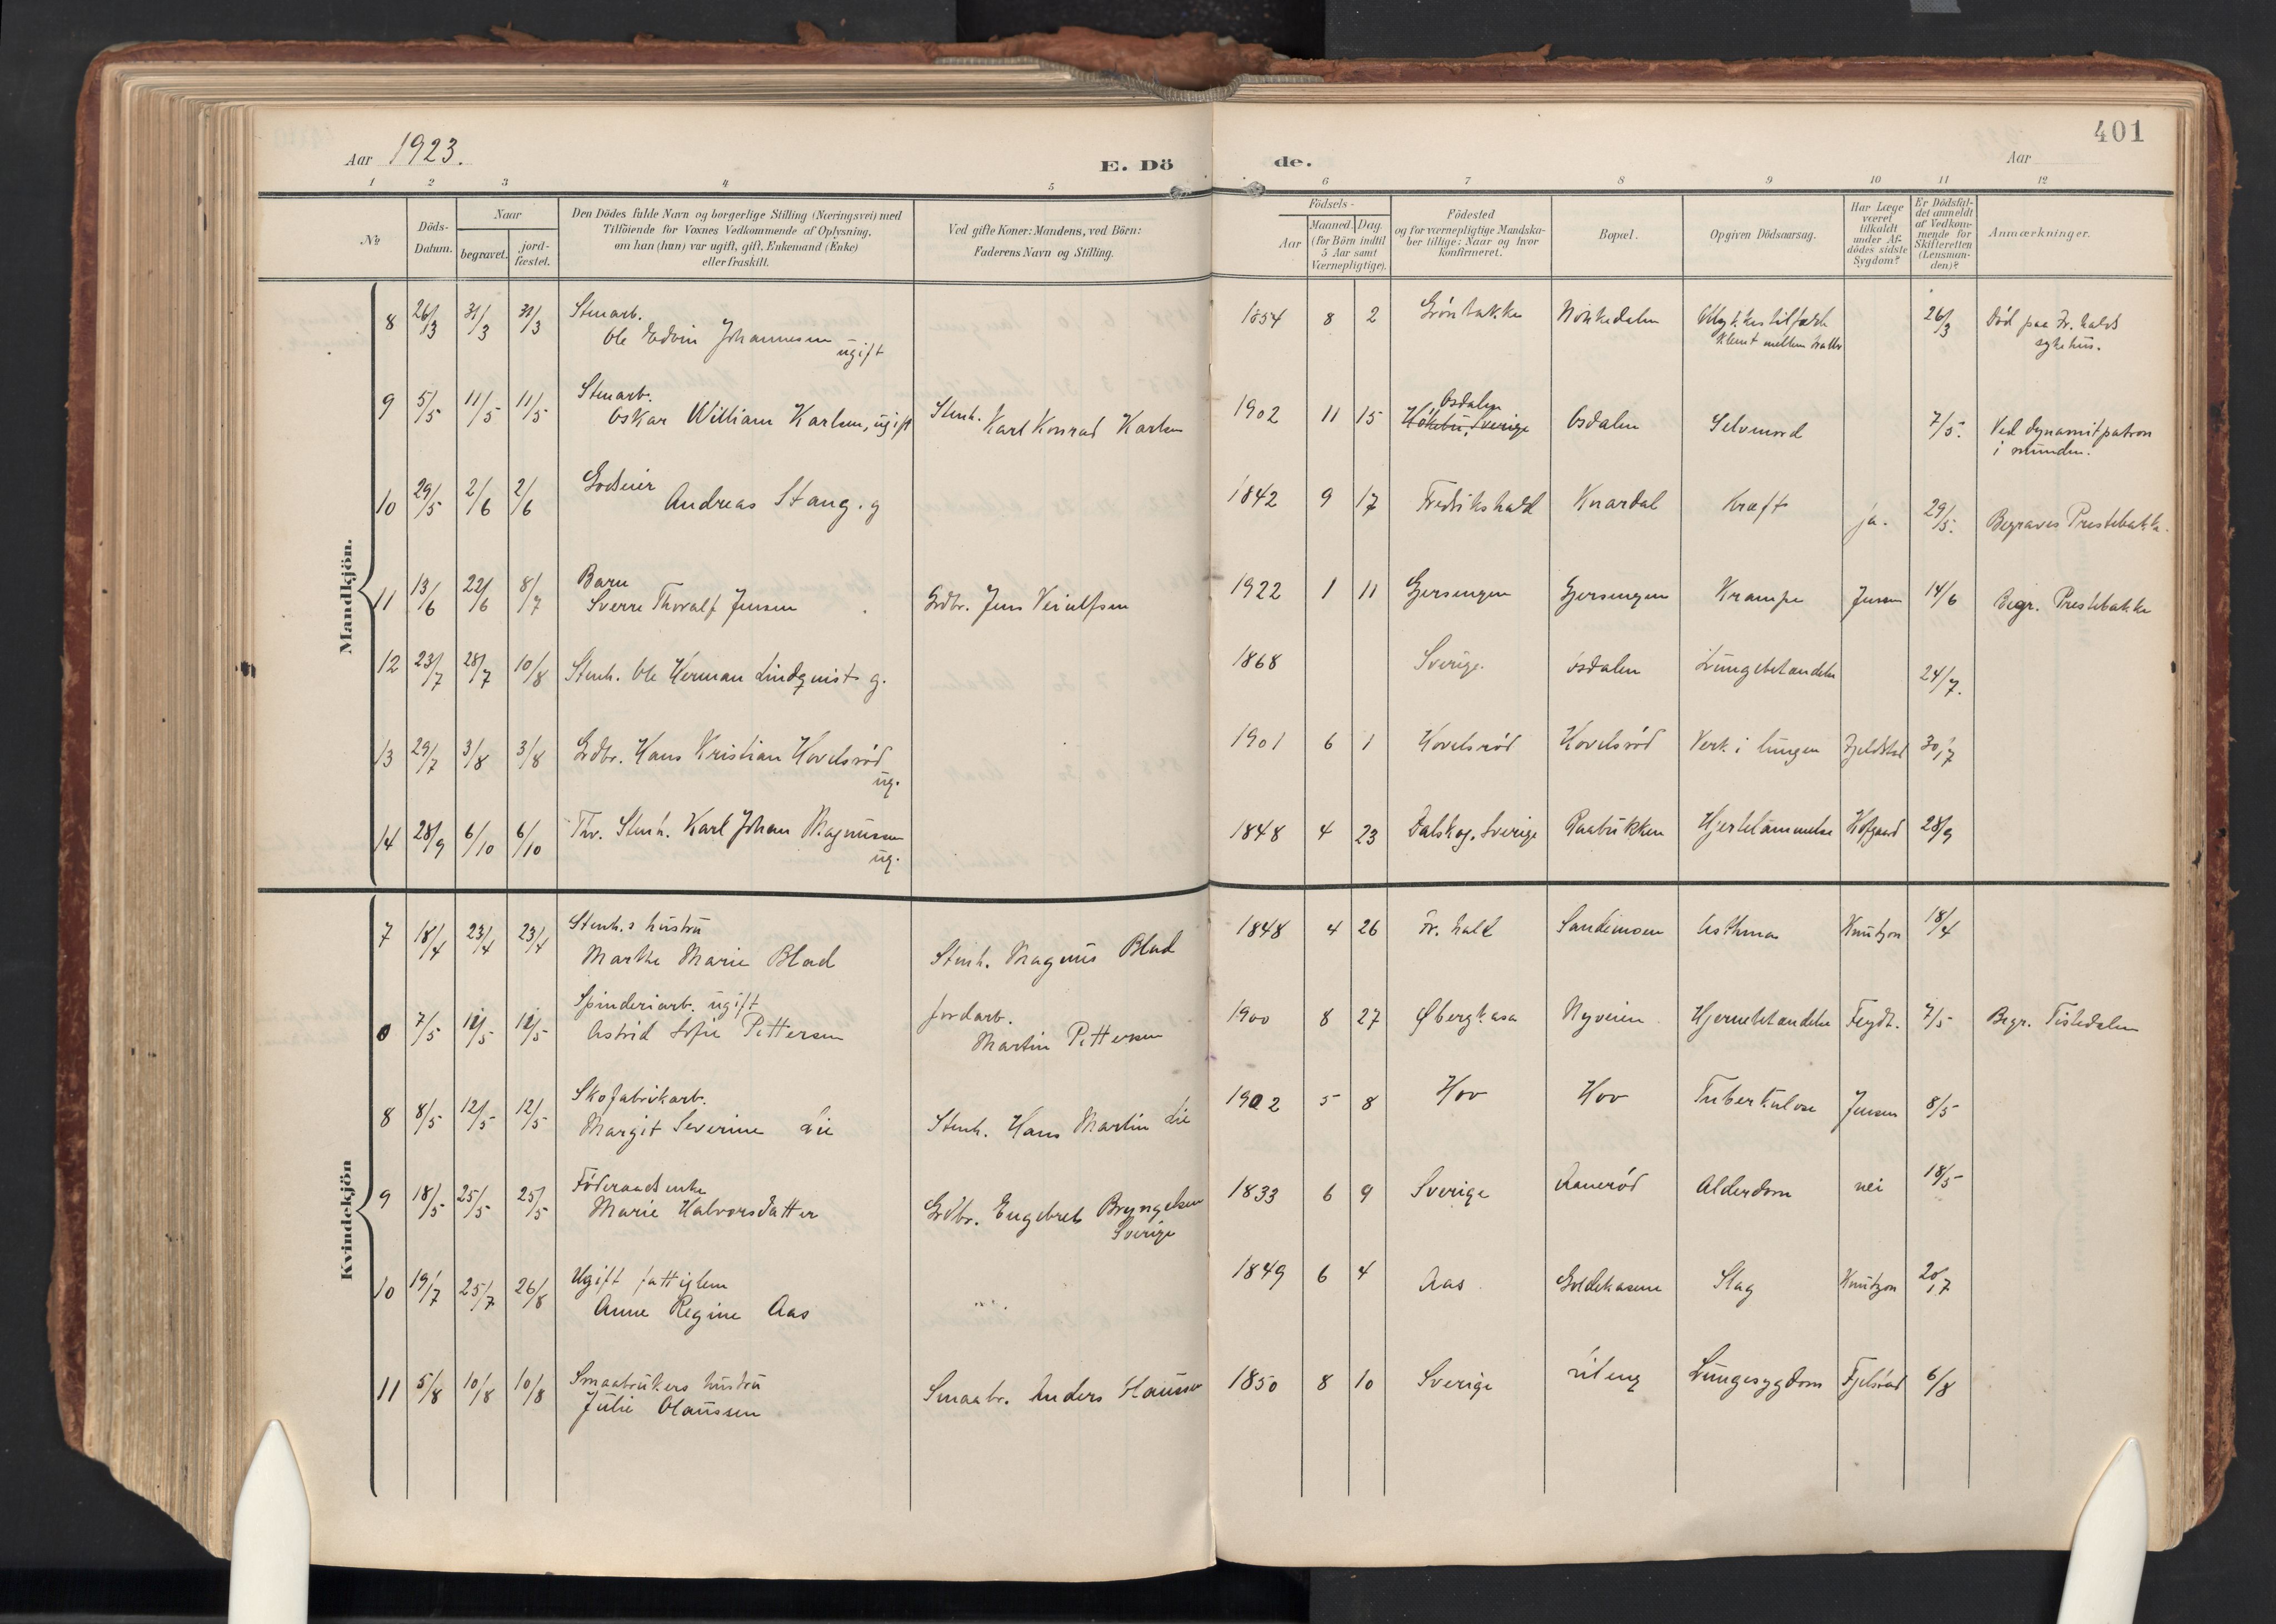 401
Aar 1923.
E. Dö
de.
Aar
1 2 3 4 5 6 7 8 9 10 11 12
№
Döds-
Datum.
Naar
begravet.
jord-
fæstet.
Den Dödes fulde Navn og borgerlige Stilling (Næringsvei) med
Tilföiende for Voxnes Vedkommende af Oplysning,
om han (hun) var ugift, gift, Enkemand (Enke)
eller fraskilt.
Ved gifte Koner: Mandens, ved Börn:
Faderens Navn og Stilling.
Födsels-
Aar
Maaned. Dag.
(for Börn indtil
5 Aar samt
Værnepligtige).
Födested
og for værnepligtige Mandska-
ber tillige: Naar og hvor
Konfirmeret.
Bopæl.
Opgiven Dödsaarsag.
Har Læge
været
tilkaldt
under Af-
dödes sidste
Sygdom?
Er Dödsfal-
det anmeldt
af Vedkom-
mende for
Skifteretten
(Lensman-
den)?
Anmærkninger.
Mandkjön.
8 26/3 31/3 31/3 Stenarb.
Ole Edvin Johannesen
ugift
1854 8 2 Grönbakke Nonkedalen Ulykkestilfæld
Klemt mellem
26/3 Död paa Fr.halds
sykehus.
9 5/5 11/5 11/5 Stenarb.
Oskar William Karlsen, ugift
Stenh. Karl Konrad Karlsen
1902 11 15 Osdalen
Sverige
Osdalen Selvmord 7/5. Ved dynamitpatron
i munden.
10 29/5 2/6 2/6 Godseier
Andreas Stang. g
1842 9 17 Fredrikshald Knardal Kræft ja. 29/5. Begraves Prestebakke.
11 13/6 22/6 8/7 Barn
Sverre Thoralf Jensen
Grdbr. Jens Veiulfsen
1922 1 11 Gjersengen Gjersengen Krampe Jensen 14/6 Begr. Prestebakke
12 23/7 28/7 10/8 Stenh. Ole Herman Lindqvist g.
1868 Sverige. Osdalen Lungebetændelse 24/7.
13 29/7 3/8 3/8 Grdbr. Hans Kristian Hovelsröd
ug.
1901 6 1 Hovelsröd Hovelsröd Verk i lungen Fjeldstad 30/7
14 28/9 6/10 6/10 Fhv. Stenh. Karl Johan Magnussen
ug.
1848 4 23 Dalskog, Sverige Raabukken Hjertelammelse Hofgaard 28/9
Kvindekjön
7 18/4 23/4 23/4 Stenh.s hustru
Marthe Marie Blad
Stenh. Magnus Blad
1848 4 26 Fr.hald Sandimoen Asthma Knutzon 18/4
0 7/5 12/5 12/5 Spinderiarb. ugift
Astrid Sofie Pettersen
Jordarb.
Martin Pettersen
1900 8 27 Øbergkasa Nyveien Hjernebetændelse 7/5 Begr. Tistedalen
8 8/5 12/5 12/5 Skofabrikarb.
Margit Severine Lie
Stenh. Hans Martin Lie
1902 5 8 Hov Hov Tuberkulose Jensen 8/5
9 18/5 25/5 25/5 Föderaadsenke
Marie Halvorsdatter
Grdbr. Engebret Bryngelsen
Sverige
1833 6 9 Sverige Aaneröd Alderdom nei 18/5
10 19/7 25/7 26/8 Ugift fattiglem
Anne Regine Aas
1849 6 4 Aas Goldekasene Slag Knutzon 20/7
11 5/8 10/8 10/8 Smaabrukers hustru
Julie Olaussen
Smaabr. Anders Olaussen
1850 8 10 Sverige Uteng Lungesygdom Fjelstad 6/8